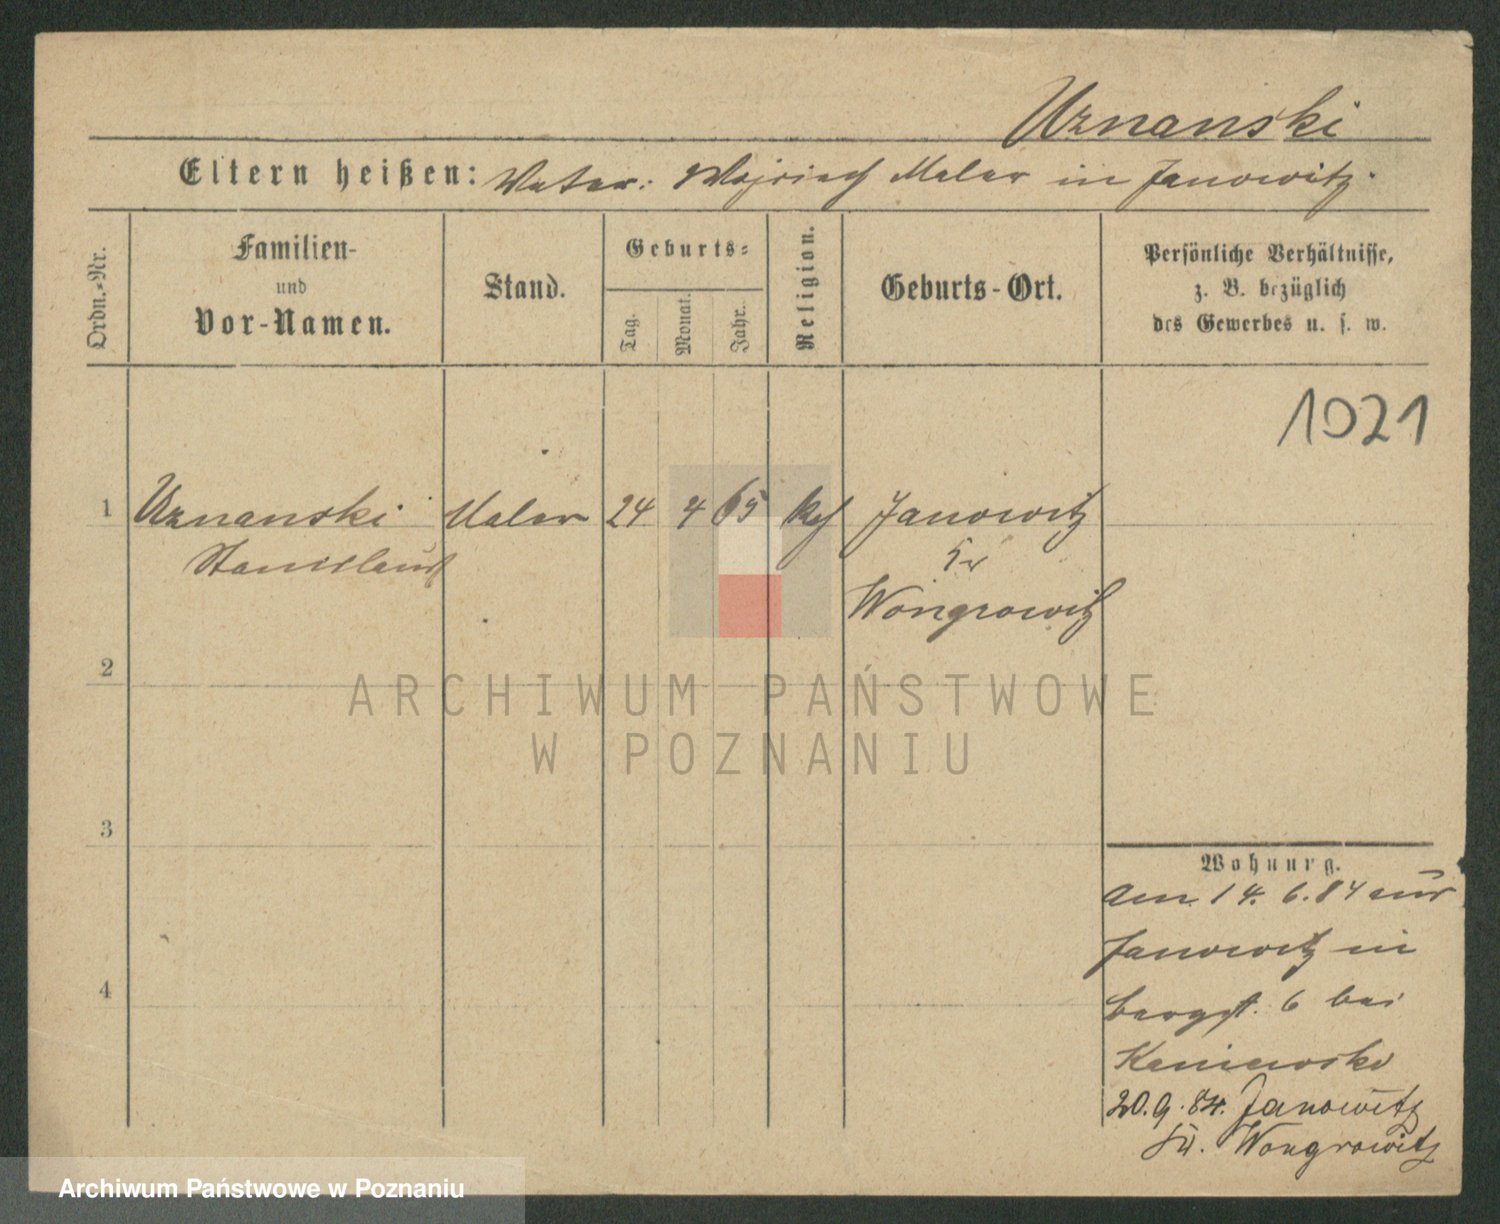 Uznanski
Eltern heißen: Vater: Wojciech Maler in Janowitz.
Ordn.-Nr.
Familien-
und
Vor-Namen.
Stand.
Geburts-
Tag.
Monat.
Jahr.
Religion.
Geburts-Ort.
Persönliche Verhältnisse,
z. B. bezüglich
des Gewerbes u. s. w.
1021
1 Uznanski Maler 24 4 65 kth Janowitz
Stanislaus
Kr
Wongrowitz
2
3
4
Wohnung.
Am 14. 6. 84 aus
Janowitz in
Bergst. 6 bei
Kaniewski
20.9.84. Janowitz
Kr. Wongrowitz
ARCHIWUM PAŃSTWOWE
W POZNANIU
Archiwum Państwowe w Poznaniu